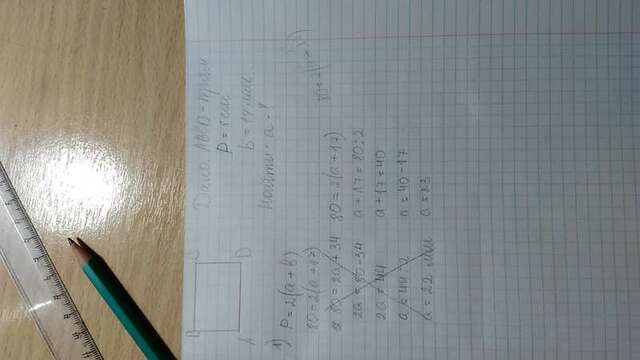 B C
A D
Дано: ABCD - прям
P = 8 см
b = 17 мм
Найти: a - ?
1) P = 2(a + b)
80 = 2(a + 17)
80 = 2a + 34
2a = 80 - 34
2a = 44
a = 44 : 2
a = 22 мм
80 = 2(a + 17)
a + 17 = 80 : 2
a + 17 = 40
a = 40 - 17
a = 23